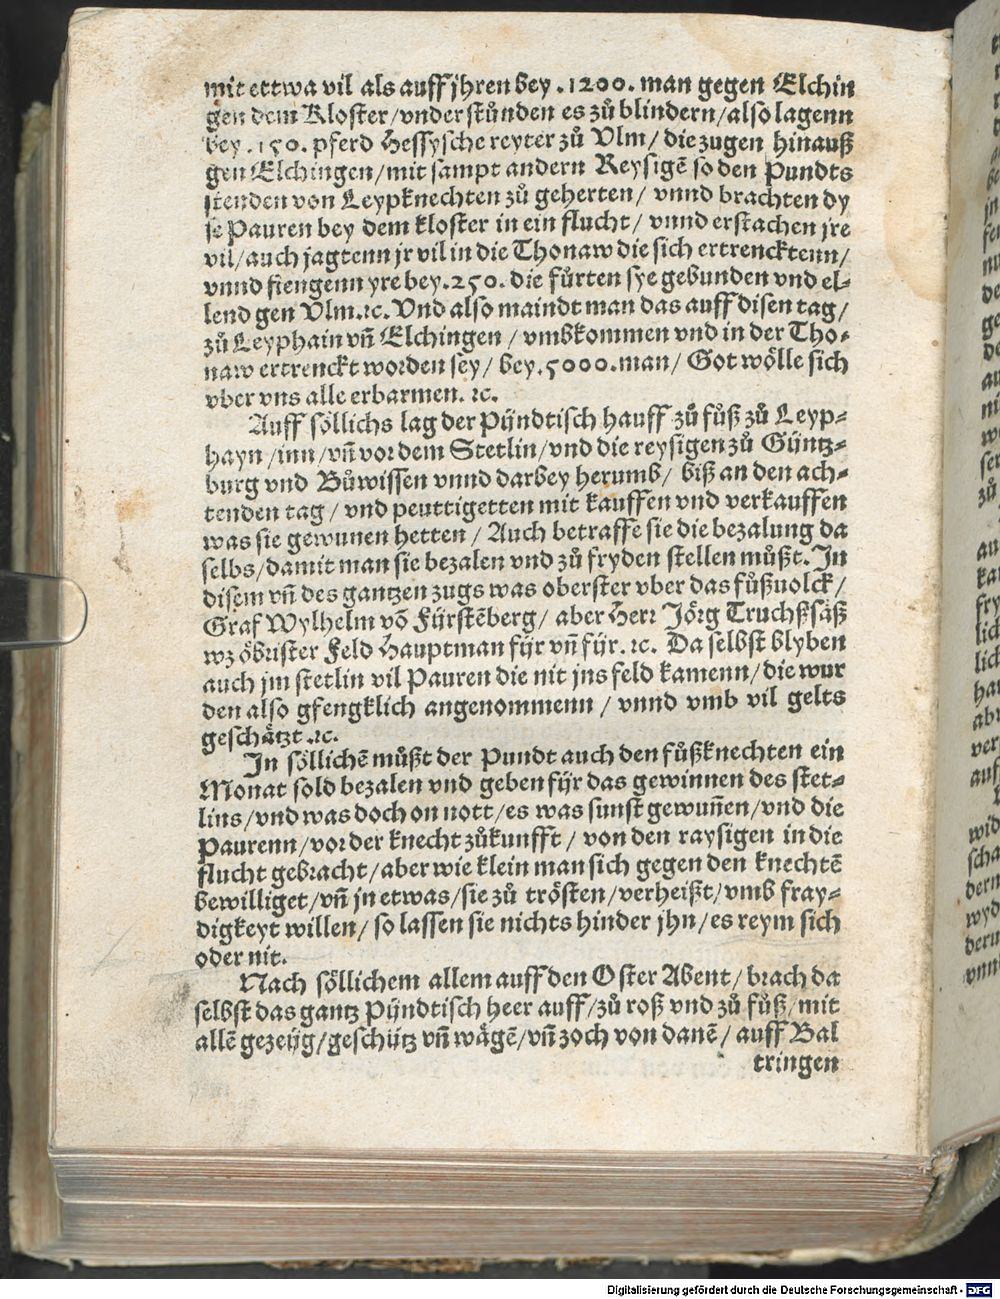 mit ettwa vil als auff jhren bey .1200. man gegen Elchin
gen dem Kloster/vnderstůnden es zů blindern/also lagenn
bey .150. pferd Hessysche reyter zů Vlm/ die zugen hinauß
gen Elchingen/mit sampt andern Reysigẽ so den Pundts
stenden von Leypknechten zů geherten/ vnnd brachten dy
se Pauren bey dem kloster in ein flucht/ vnnd erstachen jre
vil/auch jagtenn jr vil in die Thonaw die sich ertrencktenn/
vnnd fiengenn yre bey.250. die fůrten sye gebunden vnd el-
lend gen Vlm.ꝛc. Vnd also maindt man das auff disen tag/
zů Leyphain vñ Elchingen / vmbkommen vnd in der Tho-
naw ertrenckt worden sey/ bey.5000.man/ Got wölle sich
vber vns alle erbarmen. ꝛc.
Auff söllichs lag der Pündtisch hauff zů fůß zů Leyp-
hayn /inn/vñ vor dem Stetlin/vnd die reysigen zů Güntz-
burg vnd Bůwissen vnnd darbey herumb/ biß an den ach-
tenden tag / vnd peuttigetten mit kauffen vnd verkauffen
was sie gewunen hetten / Auch betraffe sie die bezalung da
selbs/damit man sie bezalen vnd zů fryden stellen můßt. In
disem vñ des gantzen zugs was oberster vber das fůßuolck/
Graf Wylhelm võ Fürstẽberg/ aber Herr Jörg Truchßsäß
wz öbrister Feld Hauptman für vñ für. ꝛc. Da selbst blyben
auch jm stetlin vil Pauren die nit jns feld kamenn/die wur
den also gfengklich angenommenn / vnnd vmb vil gelts
geschätzt .ꝛc.
In söllichẽ můßt der Pundt auch den fůßknechten ein
Monat sold bezalen vnd geben für das gewinnen des stet-
lins/vnd was doch on nott/es was sunst gewuñen/vnd die
Paurenn/vor der knecht zůkunfft / von den raysigen in die
flucht gebracht/aber wie klein man sich gegen den knechtẽ
bewilliget/vñ jn etwas/sie zů trösten/verheißt/vmb fray-
digkeyt willen/ so lassen sie nichts hinder jhn/es reym sich
oder nit.
Nach söllichem allem auff den Oster Abent/brach da
selbst das gantz Pündtisch heer auff/zů roß vnd zů fůß/mit
allẽ gezeüg/geschütz vñ wägẽ/vñ zoch von danẽ/ auff Bal
tringen
Digitalisierung gefördert durch die Deutsche Forschungsgemeinschaft - DFG